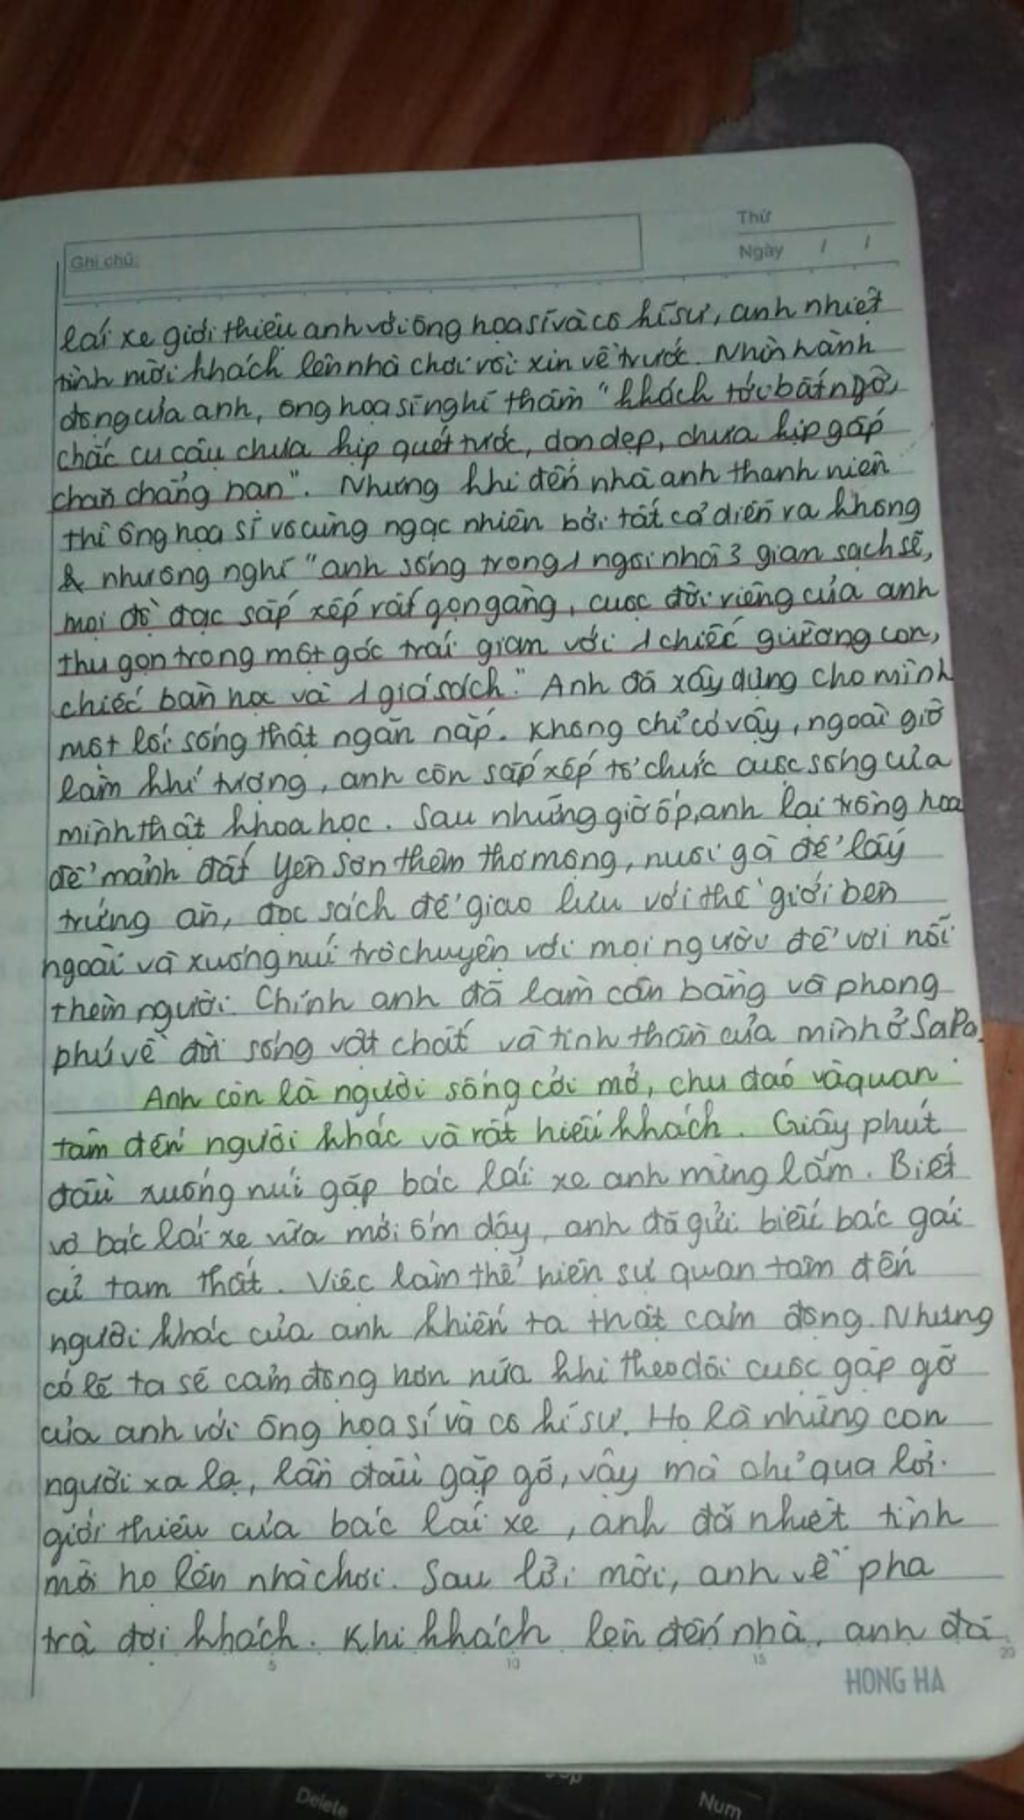 Thứ
Ghi chú:
Ngày / /
lái xe giới thiệu anh với ông hoạ sĩ và cô kĩ sư, anh nhiệt
tình mời khách lên nhà chơi rồi xin về trước. Nhìn hành
động của anh, ông hoạ sĩ nghĩ thầm "khách tới bất ngờ,
chắc cu cậu chưa kịp quét tước, dọn dẹp, chưa kịp gấp
chăn chẳng hạn". Nhưng khi đến nhà anh thanh niên
thì ông hoạ sĩ vô cùng ngạc nhiên bởi tất cả diễn ra không
& nhương nghĩ "anh sống trong 1 ngôi nhà 3 gian sạch sẽ,
mọi đồ đạc sắp xếp rất gọn gàng, cuộc đời riêng của anh
thu gọn trong một góc trái gian với 1 chiếc giường con,
chiếc bàn học và 1 giá sách." Anh đã xây dựng cho mình
một lối sống thật ngăn nắp. Không chỉ có vậy, ngoài giờ
làm khí tượng, anh còn sắp xếp tổ chức cuộc sống của
mình thật khoa học. Sau những giờ ốp, anh lại trồng hoa
để mảnh đất Yên Sơn thêm thơ mộng, nuôi gà để lấy
trứng ăn, đọc sách để giao lưu với thế giới bên
ngoài và xuống núi trò chuyện với mọi người để vơi nỗi
thèm người. Chính anh đã làm cân bằng và phong
phú về đời sống vật chất và tinh thần của mình ở SaPa.
Anh còn là người sống cởi mở, chu đáo và quan
tâm đến người khác và rất hiếu khách. Giây phút
đầu xuống núi gặp bác lái xe anh mừng lắm. Biết
vợ bác lái xe vừa mới ốm dậy, anh đã gửi biếu bác gái
củ tam thất. Việc làm thể hiện sự quan tâm đến
người khác của anh khiến ta thật cảm động. Nhưng
có lẽ ta sẽ cảm động hơn nữa khi theo dõi cuộc gặp gỡ
của anh với ông hoạ sĩ và cô kĩ sư. Họ là những con
người xa lạ, lần đầu gặp gỡ, vậy mà chỉ qua lời
giới thiệu của bác lái xe, anh đã nhiệt tình
mời họ lên nhà chơi. Sau lời mời, anh về pha
trà đợi khách. Khi khách lên đến nhà, anh đã
5 10 15 20
HONG HA
Delete
Num